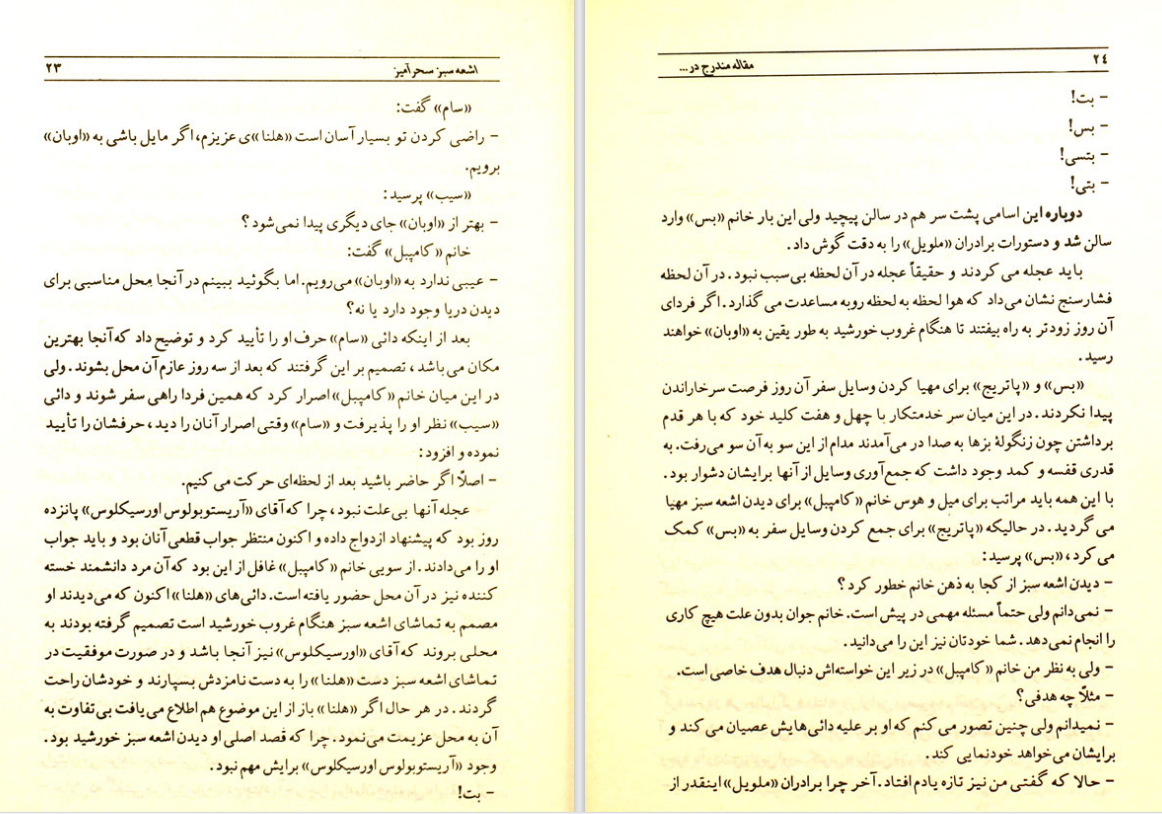 ۲۳ اشعه سبز سحرآمیز
«سام» گفت:
– راضی کردن تو بسیار آسان است «هلنا»ی عزیزم، اگر مایل باشی به «اوبان»
برویم.
«سیب» پرسید:
– بهتر از «اوبان» جای دیگری پیدا نمی‌شود؟
خانم «کامپبل» گفت:
– عیبی ندارد به «اوبان» می‌رویم. اما بگوئید ببینم در آنجا محل مناسبی برای
دیدن دریا وجود دارد یا نه؟
بعد از اینکه دائی «سام» حرف او را تأیید کرد و توضیح داد که آنجا بهترین
مکان می‌باشد، تصمیم بر این گرفتند که بعد از سه روز عازم آن محل بشوند. ولی
در این میان خانم «کامپبل» اصرار کرد که همین فردا راهی سفر شوند و دائی
«سیب» نظر او را پذیرفت و «سام» وقتی اصرار آنان را دید، حرفشان را تأیید
نموده و افزود:
– اصلاً اگر حاضر باشید بعد از لحظه‌ای حرکت می‌کنیم.
عجله آنها بی‌علت نبود، چرا که آقای «آریستوبولوس اورسیکلوس» پانزده
روز بود که پیشنهاد ازدواج داده و اکنون منتظر جواب قطعی آنان بود و باید جواب
او را می‌دادند. از سویی خانم «کامپبل» غافل از این بود که آن مرد دانشمند خسته
کننده نیز در آن محل حضور یافته است. دائی‌های «هلنا» اکنون که می‌دیدند او
مصمم به تماشای اشعه سبز هنگام غروب خورشید است تصمیم گرفته بودند به
محلی بروند که آقای «اورسیکلوس» نیز آنجا باشد و در صورت موفقیت در
تماشای اشعه سبز دست «هلنا» را به دست نامزدش بسپارند و خودشان راحت
گردند. در هر حال اگر «هلنا» باز از این موضوع هم اطلاع می‌یافت بی‌تفاوت به
آن به محل عزیمت می‌نمود. چرا که قصد اصلی او دیدن اشعه سبز خورشید بود.
وجود «آریستوبولوس اورسیکلوس» برایش مهم نبود.
– بت!
۲۴ مقاله مندرج در...
– بت!
– بس!
– بتسی!
– بتی!
دوباره این اسامی پشت سر هم در سالن پیچید ولی این بار خانم «بس» وارد
سالن شد و دستورات برادران «ملویل» را به دقت گوش داد.
باید عجله می‌کردند و حقیقاً عجله در آن لحظه بی‌سبب نبود. در آن لحظه
فشارسنج نشان می‌داد که هوا لحظه به لحظه روبه مساعدت می‌گذارد. اگر فردای
آن روز زودتر به راه بیفتند تا هنگام غروب خورشید به طور یقین به «اوبان» خواهند
رسید.
«بس» و «پاتریج» برای مهیا کردن وسایل سفر آن روز فرصت سرخاراندن
پیدا نکردند. در این میان سر خدمتکار با چهل و هفت کلید خود که با هر قدم
برداشتن چون زنگولهٔ بزها به صدا در می‌آمدند مدام از این سو به آن سو می‌رفت. به
قدری قفسه و کمد وجود داشت که جمع‌آوری وسایل از آنها برایشان دشوار بود.
با این همه باید مراتب برای میل و هوس خانم «کامپبل» برای دیدن اشعه سبز مهیا
می‌گردید. در حالیکه «پاتریج» برای جمع کردن وسایل سفر به «بس» کمک
می‌کرد، «بس» پرسید:
– دیدن اشعه سبز از کجا به ذهن خانم خطور کرد؟
– نمی‌دانم ولی حتماً مسئله مهمی در پیش است. خانم جوان بدون علت هیچ کاری
را انجام نمی‌دهد. شما خودتان نیز این را می‌دانید.
– ولی به نظر من خانم «کامپبل» در زیر این خواسته‌اش دنبال هدف خاصی است.
– مثلاً چه هدفی؟
– نمیدانم ولی چنین تصور می‌کنم که او بر علیه دائی‌هایش عصیان می‌کند و
برایشان می‌خواهد خودنمایی کند.
– حالا که گفتی من نیز تازه یادم افتاد. آخر چرا برادران «ملویل» اینقدر از